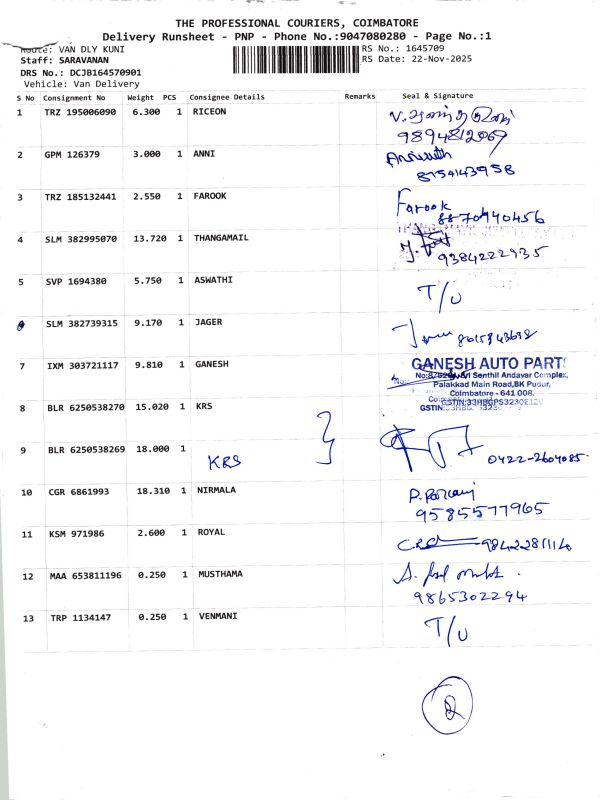 THE PROFESSIONAL COURIERS, COIMBATORE
Delivery Runsheet - PNP - Phone No.:9047080280 - Page No.:1
Route: VAN DLY KUNI
RS No.: 1645709
Staff: SARAVANAN
RS Date: 22-Nov-2025
DRS No.: DCJB164570901
Vehicle: Van Delivery
S No Consignment No Weight PCS Consignee Details Remarks Seal & Signature
1 TRZ 195006090 6.300 1 RICEON
9894812069
2 GPM 126379 3.000 1 ANNI
8754143958
3 TRZ 185132441 2.550 1 FAROOK Farook
8870940456
4 SLM 382995070 13.720 1 THANGAMAIL
9384222935
5 SVP 1694380 5.750 1 ASWATHI T/U
SLM 382739315 9.170 1 JAGER
7 IXM 303721117 9.810 1 GANESH GANESH AUTO PARTS
Sri Senthil Andavar Complex,
Palakkad Main Road,BK Pudur,
Coimbatore - 641 008.
8 BLR 6250538270 15.020 1 KRS
9 BLR 6250538269 18.000 1 KRS 0422-2604085
10 CGR 6861993 18.310 1 NIRMALA
9585577965
11 KSM 971986 2.600 1 ROYAL
12 MAA 653811196 0.250 1 MUSTHAMA
9865302294
13 TRP 1134147 0.250 1 VENMANI T/U
2